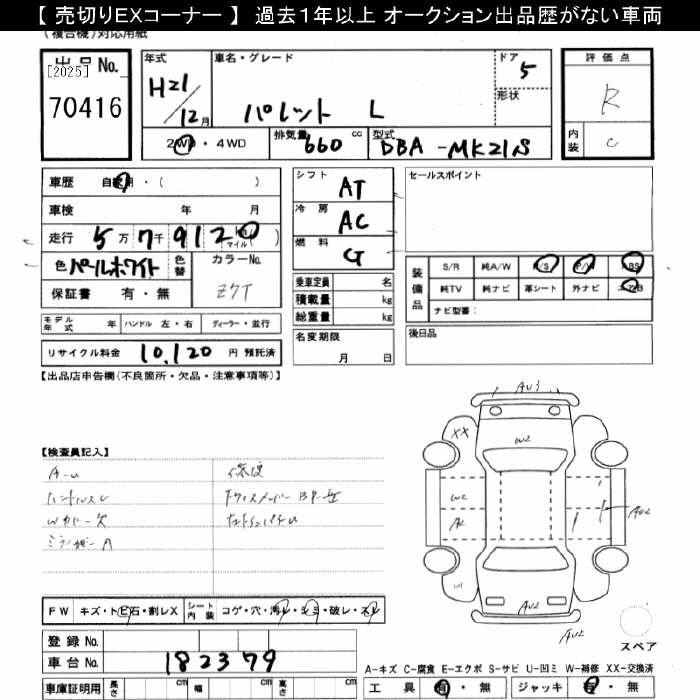 【 売切りEXコーナー 】 過去1年以上 オークション出品歴がない車両
(複合機)対応用紙
出品No.
[2025]
70416
年式
H21/12月
車名・グレード
パレット L
ドア
5
形状
評価点
R
内装
C
2WD・4WD
排気量 660 cc
型式 DBA-MK21S
車歴 自家用・( )
車検 年 月
走行 5万7千9120 km マイル( )
色 パールホワイト
色替
カラーNo.
ZCT
保証書 有・無
モデル年式 年
ハンドル 左・右
ディーラー・並行
リサイクル料金 10,120 円 預託済
シフト AT
冷房 AC
燃料 G
乗車定員 名
積載量 kg
総重量 kg
名変期限
月 日
セールスポイント
装備品
S/R 純A/W P/S P/W ABS
純TV 純ナビ 革シート 外ナビ エアB
ナビ型番:
後日品
【出品店申告欄(不良箇所・欠品・注意事項等)】
【検査員記入】
A-U
ハンドルスレ
Wカバー欠
A
修復
FW キズ・トビ石・割レX
シート内装 コゲ・穴・汚レ・シミ・破レ・スレ
登録No.
車台No. 182379
車庫証明用 長さ cm 幅 cm 高さ cm
AU3
XX
W2
W2
A2
AU2
U1
AU2
AU2
スペア
A-キズ C-腐食 E-エクボ S-サビ U-凹ミ W-補修 XX-交換済
工具 有・無 ジャッキ 有・無